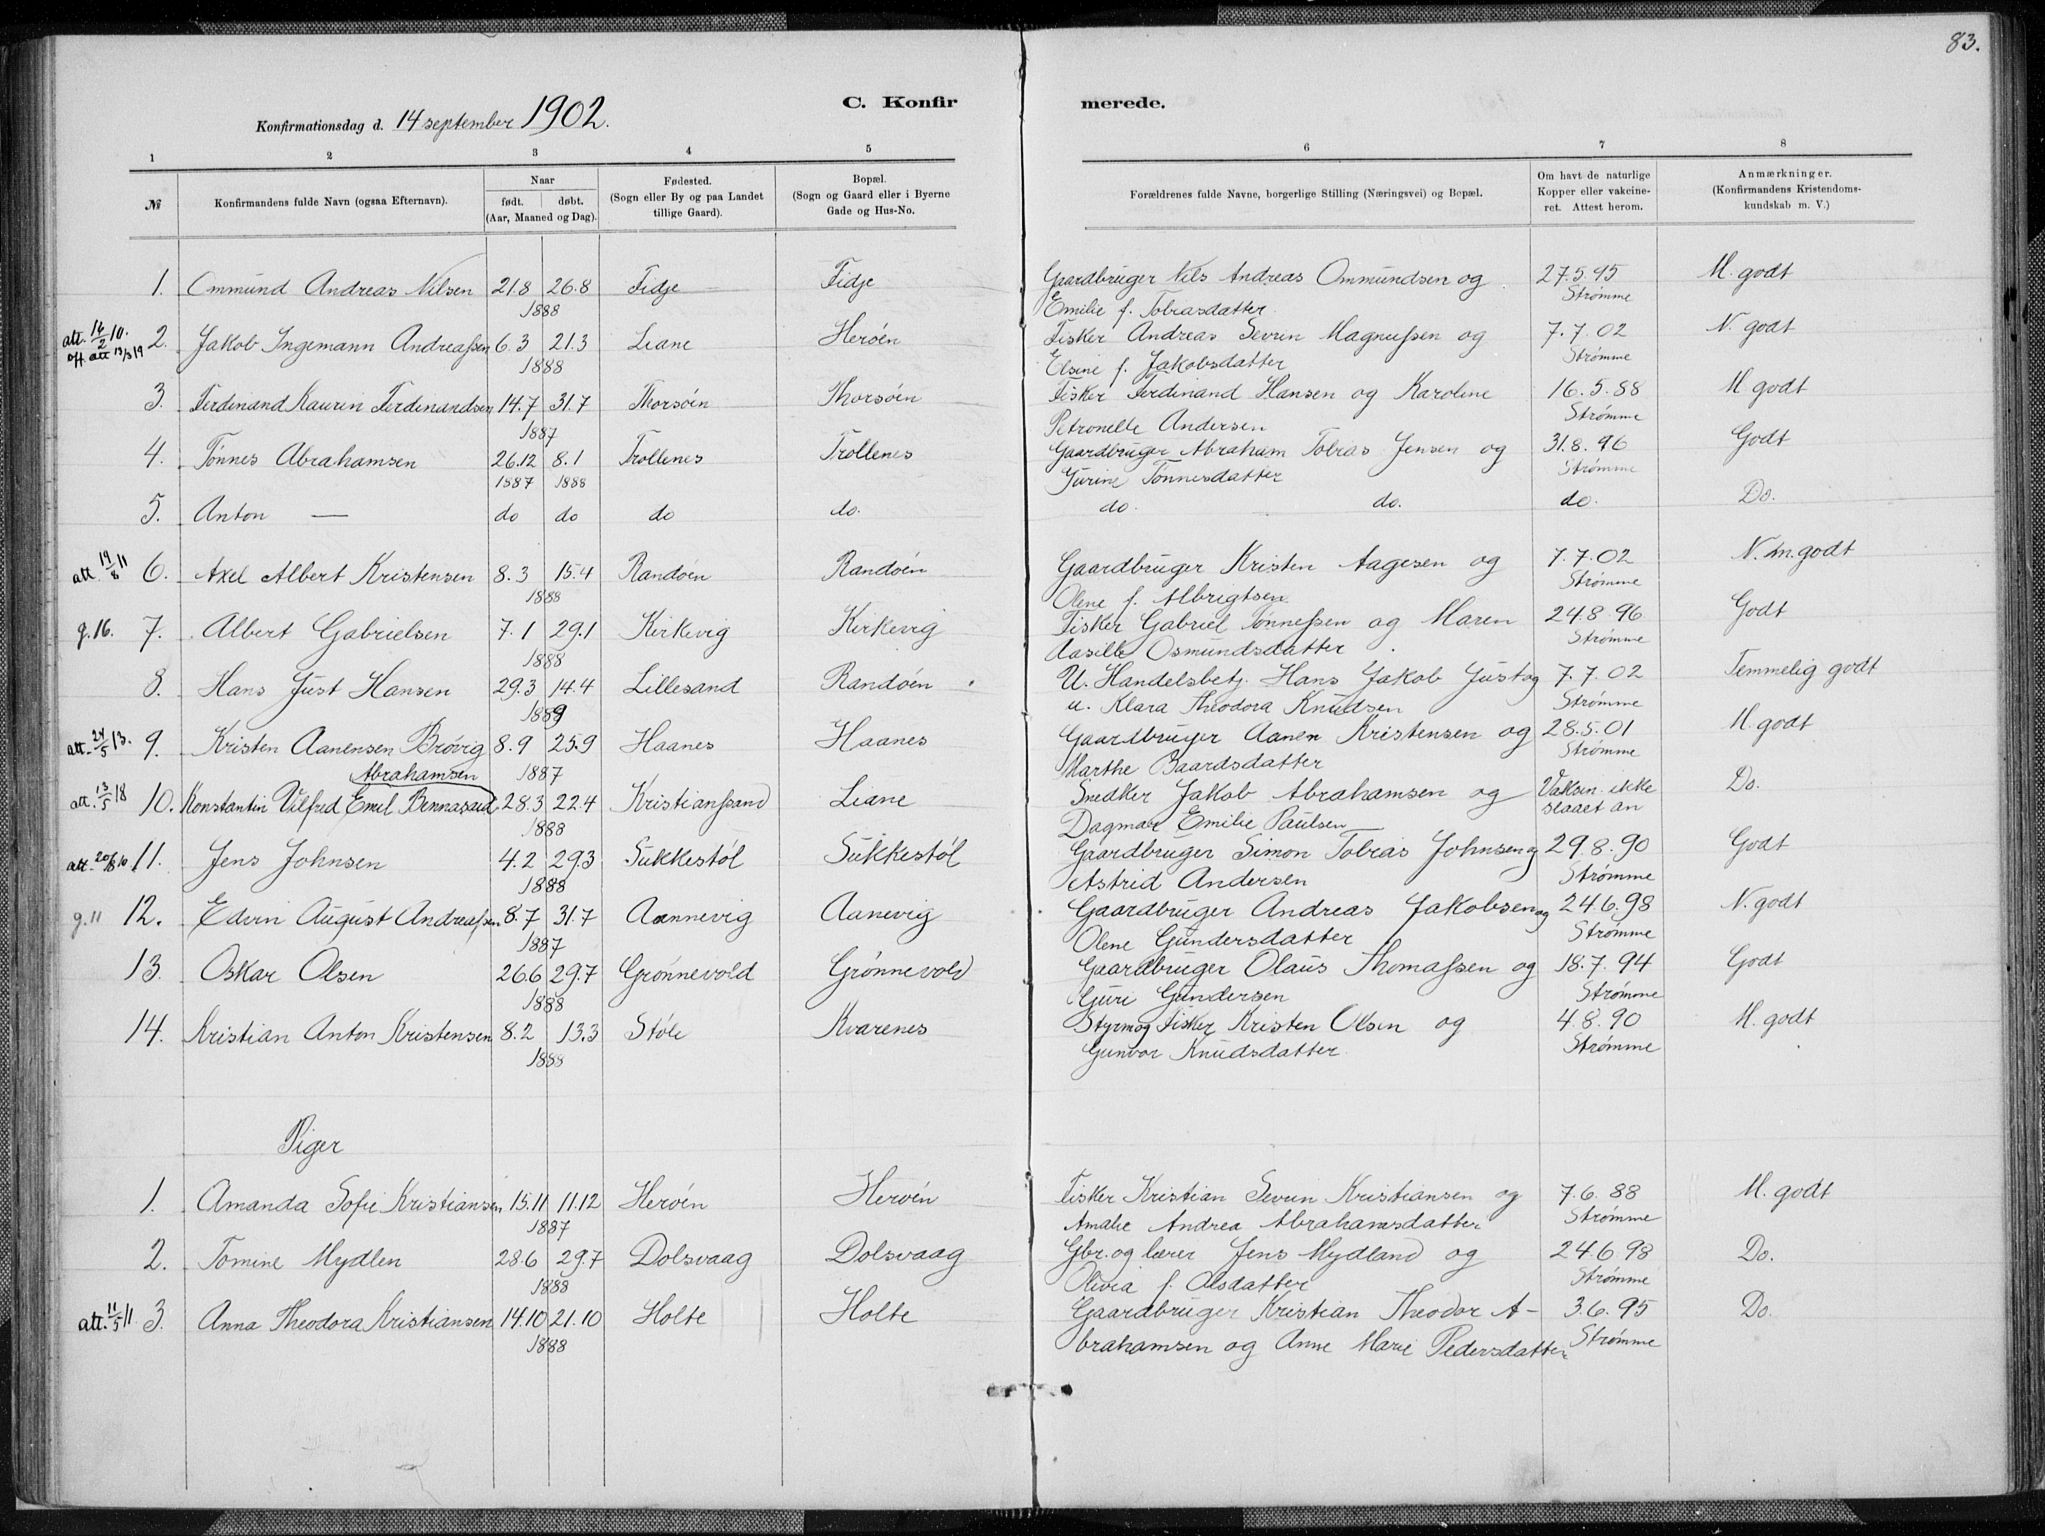 83.
C. Konfirmerede.
Konfirmationsdag d. 14 september 1902.
1 2 3 4 5 6 7 8
№ Konfirmandens fulde Navn (ogsaa Efternavn). Naar født. døbt. (Aar, Maaned og Dag). Fødested. (Sogn eller By og paa Landet tillige Gaard). Bopæl. (Sogn og Gaard eller i Byerne Gade og Hus-No. Forældrenes fulde Navne, borgerlige Stilling (Næringsvei) og Bopæl. Om havt de naturlige Kopper eller vakcineret. Attest herom. Anmærkninger. (Konfirmandens Kristendomskundskab m. V.)
1. Ommund Andreas Nilsen 21.8 26.8 Fidje Fidje Gaardbruger Nils Andreas Ommundsen og 27.5.95 M. godt
1888 Emilie f. Tobiasdatter Strømme
att. 14/2 10. off. att 13/3 19 2. Jakob Ingemann Andreassen 6.3 21.3 Liane Herøen Fisker Andreas Severin Magnussen og 7.7.02 N. godt
1888 Elsine f. Jakobsdatter Strømme
3. Ferdinand Laurin Ferdinandsen 14.7 31.7 Thorsøen Thorsøen Fisker Ferdinand Hansen og Karoline 16.5.88 M godt
1887 Petronelle Andersen Strømme
4. Tønnes Abrahamsen 26.12 8.1 Trollenes Trollenes Gaardbruger Abraham Tobias Jensen og 31.8.96 Godt
1887 1888 Gurine Tønnesdatter Strømme
5. Anton — do do do do. do. do. do. Do.
att. 19/8 11 6. Axel Albert Kristensen 8.3 15.4 Randøen Randøen Gaardbruger Kristen Aagesen og 7.7.02 N. m. godt
1888 Olene f. Albrigtsen Strømme
g. 16. 7. Albert Gabrielsen 7.1 29.1 Kirkevig Kirkevig Fisker Gabriel Tønnessen og Maren 24.8.96 Godt
1888 Aasille Osmundsdatter Strømme
8. Hans Just Hansen 29.3 14.4 Lillesand Randøen U. Handelsbetj. Hans Jakob Just og 7.7.02 Temmelig godt
1889 u. Klara Theodora Knudsen Strømme
att. 24/5 13. 9. Kristen Aanensen Brøvig 8.9 25.9 Haanes Haanes Gaardbruger Aanen Kristensen og 28.5.01 M. godt
Abrahamsen 1887 Marthe Baardsdatter Strømme
att. 13/5 18 10. Konstantin Vilfred Emil Bennasaid 28.3 22.4 Kristianssand Liane Snedker Jakob Abrahamsen og Vaksin. ikke Do.
1888 Dagmar Emilie Paulsen slaaet an
att. 20/8 10 11. Jens Johnsen 4.2 29.3 Sukkestøl Sukkestøl Gaardbruger Simon Tobias Johnsen og 29.8.90 Godt
1888 Astrid Andersen Strømme
g. 11 12. Edvin August Andreassen 8.7 31.7 Aannevig Aanevig Gaardbruger Andreas Jakobsen og 24.6.98 N. godt
1887 Olene Gundersdatter Strømme
13. Oskar Olsen 26.6 29.7 Grønnevold Grønnevold Gaardbruger Olaus Thomassen og 18.7.94 Godt
1888 Guri Gundersen Strømme
14. Kristian Anton Kristensen 8.2 13.3 Støle Kvarenes Styrm og Fisker Kristen Olsen og 4.8.90 M. godt
1888 Gunvor Knudsdatter. Strømme
Piger
1. Amanda Sofie Kristiansen 15.11 11.12 Herøen Herøen Fisker Kristian Severin Kristiansen og 7.6.88 M. godt
1887 Amalie Andrea Abrahamsdatter Strømme
2. Tomine Mydlen 28.6 29.7 Dolsvaag Dolsvaag Gbr. og lærer Jens Mydland og 24.6.98 Do.
1888 Olivia f. Olsdatter Strømme
att. 11/5 11 3. Anna Theodora Kristiansen 14.10 21.10 Holte Holte Gaardbruger Kristian Theodor A- 3.6.95 Do.
1888 brahamsen og Anne Marie Pedersdatter Strømme